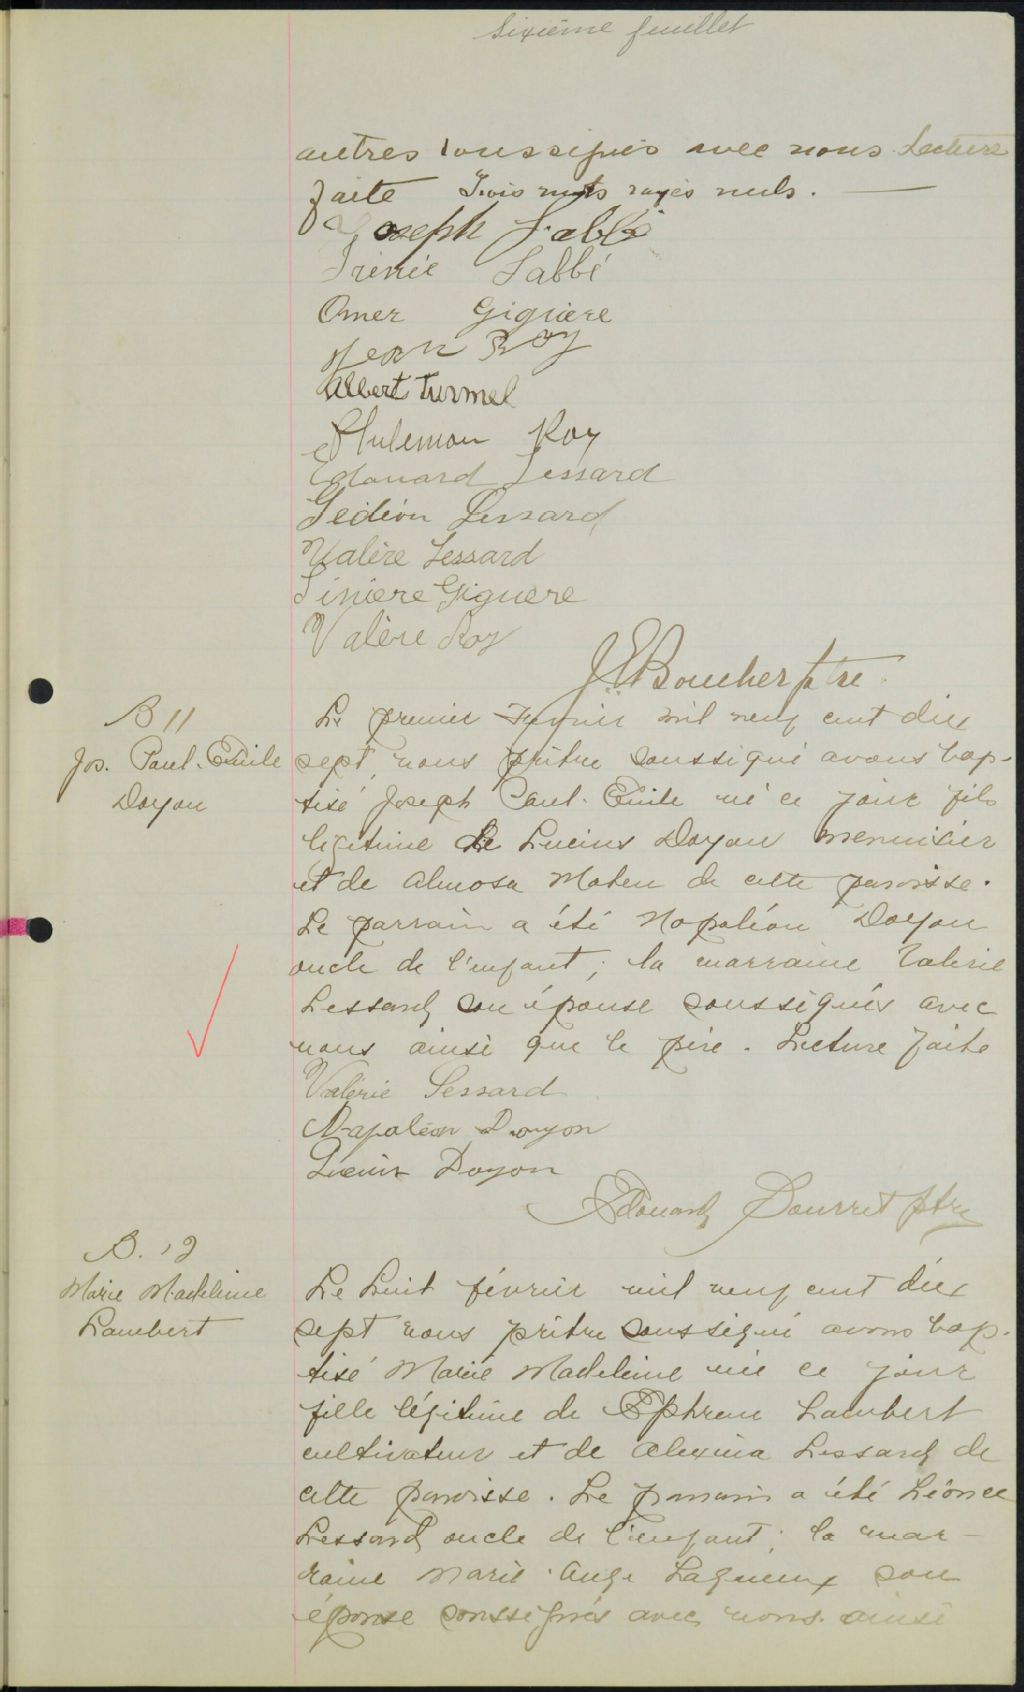 Sixième feuillet
autres soussignés avec nous Lecture
faite Trois mots rayés nuls.
Joseph Labbé
Irénée Labbé
Omer Giguère
Jean Roy
Albert Turmel
Philemon Roy
Edouard Lessard
Gédéon Lessard
Valère Lessard
Giguere
Valère Roy
J.E. Boucher ptre.
B 11
Jos. Paul-Emile
Doyon
Le premier Février mil neuf cent dix
sept, nous prêtre soussigné avons bap-
tisé Joseph Paul-Emile né ce jour fils
légitime de Lucius Doyon menuisier
et de Almosa Mateu de cette paroisse.
Le parrain a été Napoléon Doyon
oncle de l'enfant; la marraine Valerie
Lessard son épouse soussignés avec
nous ainsi que le père. Lecture faite
Valérie Lessard
Napoléon Doyon
Lucius Doyon
Edouard Pourret ptre
B. 12
Marie Madeleine
Lambert
Le huit février mil neuf cent dix
sept nous prêtre soussigné avons bap-
tisé Marie Madeleine née ce jour
fille légitime de Ephrem Lambert
cultivateur et de Alexina Lessard de
cette paroisse. Le parrain a été Léonce
Lessard oncle de l'enfant; la mar-
raine Marie-Ange Lagueux son
épouse soussignés avec nous ainsi